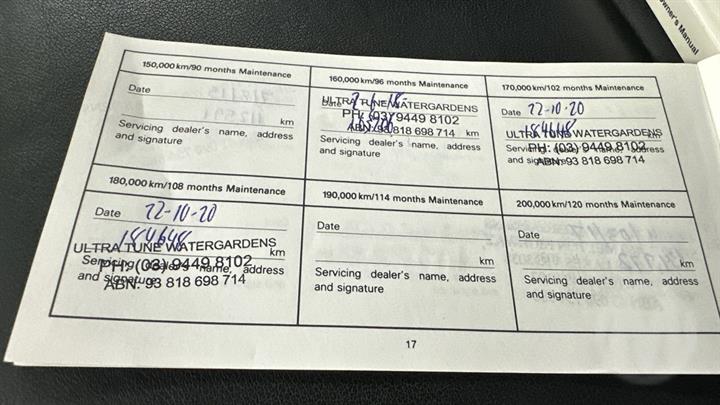 Owner's Manual
150,000 km/90 months Maintenance
Date
km
Servicing dealer's name, address
and signature
160,000 km/96 months Maintenance
Date
ULTRA TUNE WATERGARDENS
PH: (03) 9449 8102
ABN: 93 818 698 714 km
Servicing dealer's name, address
and signature
170,000 km/102 months Maintenance
Date 22-10-20
184648
ULTRA TUNE WATERGARDENS
km
PH: (03) 9449 8102
Servicing dealer's name, address
and signature
ABN: 93 818 698 714
180,000 km/108 months Maintenance
Date 22-10-20
184648
ULTRA TUNE WATERGARDENS
km
PH: (03) 9449 8102
Servicing dealer's name, address
and signature
ABN: 93 818 698 714
190,000 km/114 months Maintenance
Date
km
Servicing dealer's name, address
and signature
200,000 km/120 months Maintenance
Date
km
Servicing dealer's name, address
and signature
17